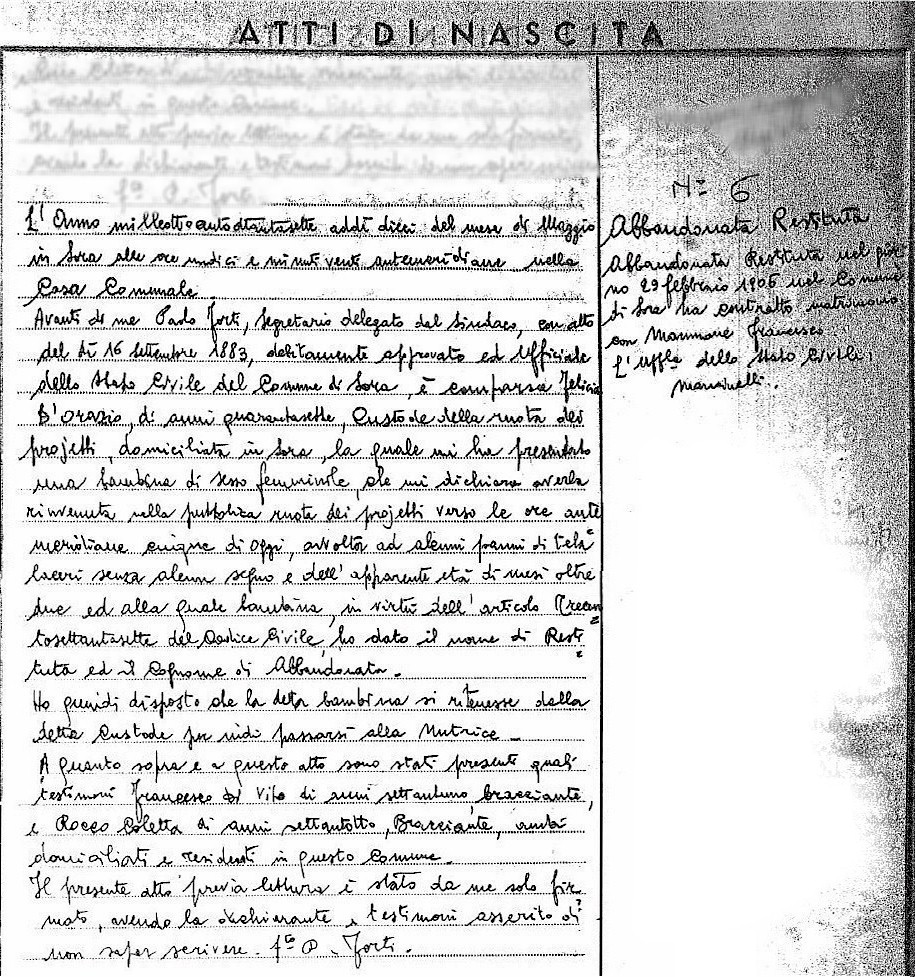 ATTI DI NASCITA
Nº 6
Abbandonata Restituta
Abbandonata Restituta nel gior
no 29 febbraio 1906 nel Comune
di Sora ha contratto matrimonio
con Francesco
L'Uffle dello Stato Civile;
Mancinelli.
L'Anno milleottocentottantasette addì dieci del mese di Maggio
in Sora alle ore undici e minuti venti antemeridiane nella
Casa Comunale
Avanti di me Paolo Forti, Segretario delegato dal Sindaco, con atto
del dì 16 settembre 1883, debitamente approvato ed Ufficiale
dello Stato Civile del Comune di Sora, è comparsa Felicia
D'Orazio, di anni quarantasette, Custode della ruota dei
projetti, domiciliata in Sora, la quale mi ha presentato
una bambina di sesso femminile, che mi dichiara averla
rinvenuta nella pubblica ruota dei projetti verso le ore ante
meridiane cinque di oggi, avvolta ad alcuni panni di tela
laceri senza alcun segno e dell'apparente età di mesi oltre
due ed alla quale bambina, in virtù dell'articolo Trecen
tosettantasette del Codice Civile, ho dato il nome di Resti
tuta ed il Cognome di Abbandonata.
Ho quindi disposto che la detta bambina si ritenesse dalla
detta Custode per indi passarsi alla Nutrice.
A quanto sopra e a questo atto sono stati presenti quali
testimoni Francesco di Vito di anni settantuno bracciante,
e Rocco Coletta di anni settantotto, Bracciante, ambi
domiciliati e residenti in questo Comune.
Il presente atto previa lettura è stato da me solo fir
mato, avendo la dichiarante e testimoni asserito di
non saper scrivere. fto P. Forti.